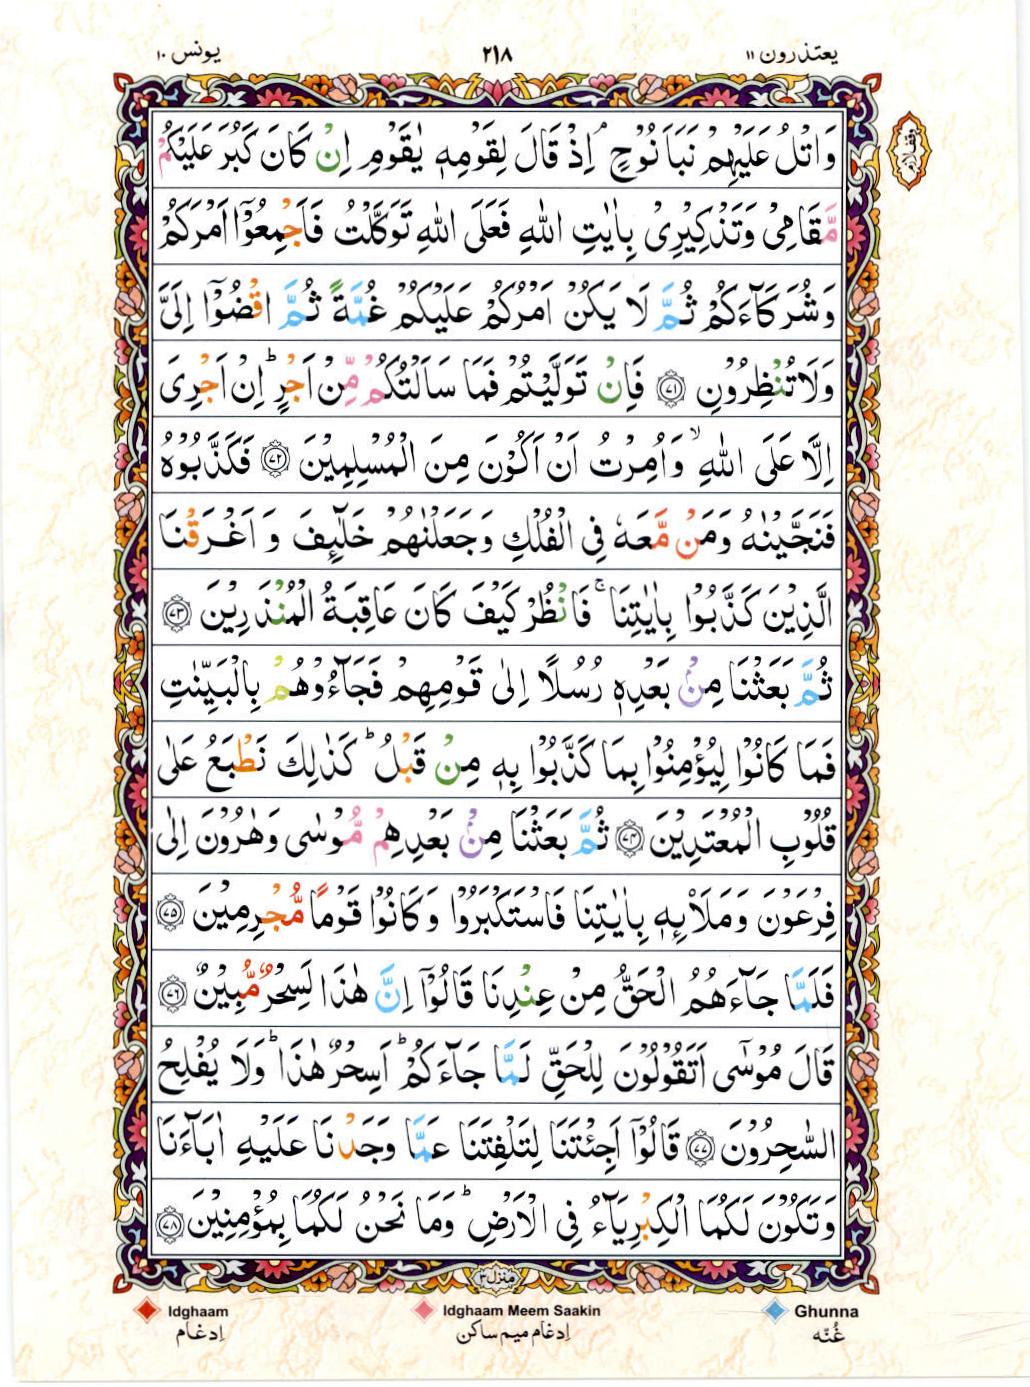 یعتذرون ۱۱
۲۱۸
یونس ۱۰
وقف لازم
وَاتْلُ عَلَیْهِمْ نَبَاَ نُوْحٍ ۘ اِذْ قَالَ لِقَوْمِهٖ یٰقَوْمِ اِنْ كَانَ كَبُرَ عَلَیْكُمْ
مَّقَامِیْ وَتَذْكِیْرِیْ بِاٰیٰتِ اللّٰهِ فَعَلَی اللّٰهِ تَوَكَّلْتُ فَاَجْمِعُوْۤا اَمْرَكُمْ
وَشُرَكَآءَكُمْ ثُمَّ لَا یَكُنْ اَمْرُكُمْ عَلَیْكُمْ غُمَّةً ثُمَّ اقْضُوْۤا اِلَیَّ
وَلَا تُنْظِرُوْنِ ﴿۷۱﴾ فَاِنْ تَوَلَّیْتُمْ فَمَا سَاَلْتُكُمْ مِّنْ اَجْرٍ ؕ اِنْ اَجْرِیَ
اِلَّا عَلَی اللّٰهِ ۙ وَاُمِرْتُ اَنْ اَكُوْنَ مِنَ الْمُسْلِمِیْنَ ﴿۷۲﴾ فَكَذَّبُوْهُ
فَنَجَّیْنٰهُ وَمَنْ مَّعَهٗ فِی الْفُلْكِ وَجَعَلْنٰهُمْ خَلٰٓئِفَ وَ اَغْرَقْنَا
الَّذِیْنَ كَذَّبُوْا بِاٰیٰتِنَا ۚ فَانْظُرْ كَیْفَ كَانَ عَاقِبَةُ الْمُنْذَرِیْنَ ﴿۷۳﴾
ثُمَّ بَعَثْنَا مِنْۢ بَعْدِهٖ رُسُلًا اِلٰی قَوْمِهِمْ فَجَآءُوْهُمْ بِالْبَیِّنٰتِ
فَمَا كَانُوْا لِیُؤْمِنُوْا بِمَا كَذَّبُوْا بِهٖ مِنْ قَبْلُ ؕ كَذٰلِكَ نَطْبَعُ عَلٰی
قُلُوْبِ الْمُعْتَدِیْنَ ﴿۷۴﴾ ثُمَّ بَعَثْنَا مِنْۢ بَعْدِهِمْ مُّوْسٰی وَهٰرُوْنَ اِلٰی
فِرْعَوْنَ وَمَلَاۡئِهٖ بِاٰیٰتِنَا فَاسْتَكْبَرُوْا وَكَانُوْا قَوْمًا مُّجْرِمِیْنَ ﴿۷۵﴾
فَلَمَّا جَآءَهُمُ الْحَقُّ مِنْ عِنْدِنَا قَالُوْۤا اِنَّ هٰذَا لَسِحْرٌ مُّبِیْنٌ ﴿۷۶﴾
قَالَ مُوْسٰۤی اَتَقُوْلُوْنَ لِلْحَقِّ لَمَّا جَآءَكُمْ ؕ اَسِحْرٌ هٰذَا ؕ وَلَا یُفْلِحُ
السّٰحِرُوْنَ ﴿۷۷﴾ قَالُوْۤا اَجِئْتَنَا لِتَلْفِتَنَا عَمَّا وَجَدْنَا عَلَیْهِ اٰبَآءَنَا
وَتَكُوْنَ لَكُمَا الْكِبْرِیَآءُ فِی الْاَرْضِ ؕ وَمَا نَحْنُ لَكُمَا بِمُؤْمِنِیْنَ ﴿۷۸﴾
منزل ۳
Idghaam Idghaam Meem Saakin Ghunna
اِدغام اِدغام میم ساکن غُنّہ